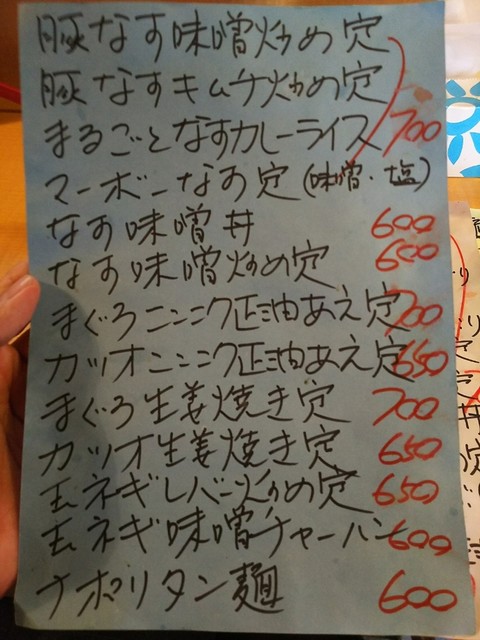 豚なす味噌炒め定
豚なすキムチ炒め定
まるごとなすカレーライス 700
マーボーなす定(味噌・塩)
なす味噌丼 600
なす味噌炒め定 600
まぐろニンニク正油あえ定 700
カツオニンニク正油あえ定 650
まぐろ生姜焼き定 700
カツオ生姜焼き定 650
玉ネギレバー炒め定 650
玉ネギ味噌チャーハン 600
ナポリタン麺 600